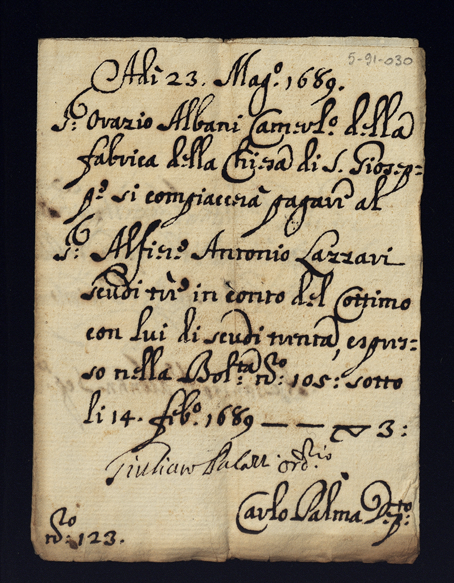 5-91-030
Adì 23. Magº. 1689.
Sr. Orazio Albani Camerlº. della
fabrica della Chiesa di S. Giosep=
pe si compiacerà pagare al
Sr. Alfierº Antonio Lazzari
scudi tre in conto del Cottimo
con lui di scudi trenta, espres=
so nella Bolta. No. 105: sotto
li 14. febº. 1689 — — ▽ 3:
Giuliano ordrio
Carlo Palma Dtto
No. 123.